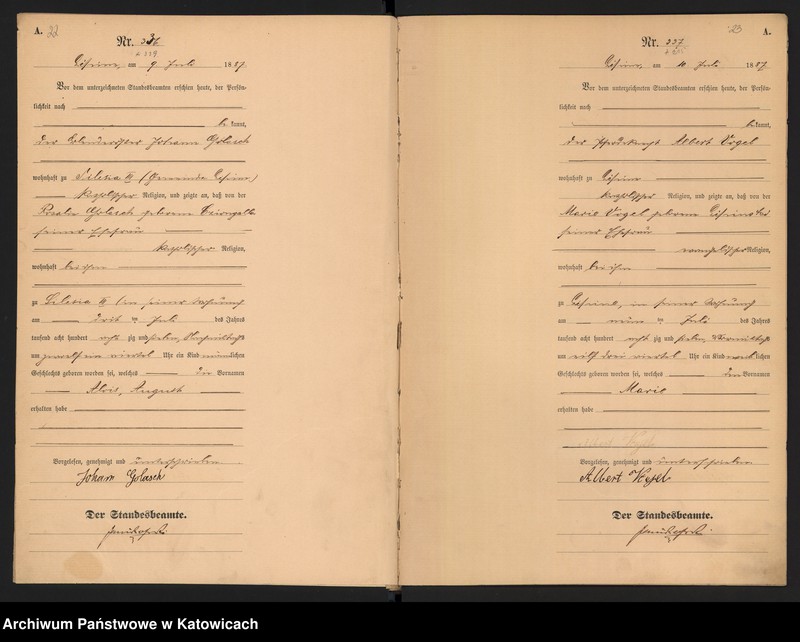 A. 22
Nr. 336
am 9 Juli 1887.
Vor dem unterzeichneten Standesbeamten erschien heute, der Persön-
lichkeit nach
bekannt,
der Johann Golasch
wohnhaft zu Silesia III (Gemeinde
katholischer Religion, und zeigte an, daß von der
Rosalie Golasch geborene
seiner Ehefrau
katholischer Religion,
wohnhaft bei ihm
zu Silesia III in seiner Wohnung
am Juli des Jahres
tausend acht hundert acht zig und sieben,
um ein viertel Uhr ein Kind männlichen
Geschlechts geboren worden sei, welches den Vornamen
Alois, August
erhalten habe
Vorgelesen, genehmigt und unterschrieben
Johann Golasch
Der Standesbeamte.
23 A.
Nr. 337
am Juli 1887
Vor dem unterzeichneten Standesbeamten erschien heute, der Persön-
lichkeit nach
bekannt,
der Pferdeknecht Albert Vogel
wohnhaft zu
katholischer Religion, und zeigte an, daß von der
Marie Vogel geborene
seiner Ehefrau
evangelischer Religion,
wohnhaft bei ihm
zu in seiner Wohnung
am neun ten Juli des Jahres
tausend acht hundert acht zig und sieben, Vormittags
um elf drei viertel Uhr ein Kind weiblichen
Geschlechts geboren worden sei, welches den Vornamen
Marie
erhalten habe
Vorgelesen, genehmigt und unterschrieben
Albert
Der Standesbeamte.
Archiwum Państwowe w Katowicach